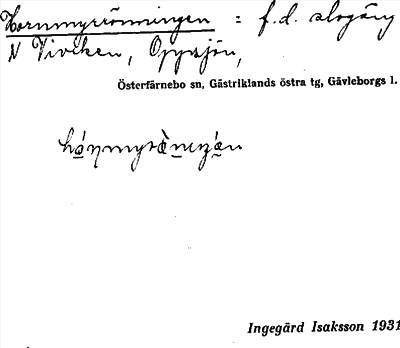 Hornmyrrönningen : f.d. slogäng
N Viviken, Oppsjön,
Österfärnebo sn, Gästriklands östra tg, Gävleborgs l.
Ingegärd Isaksson 1931